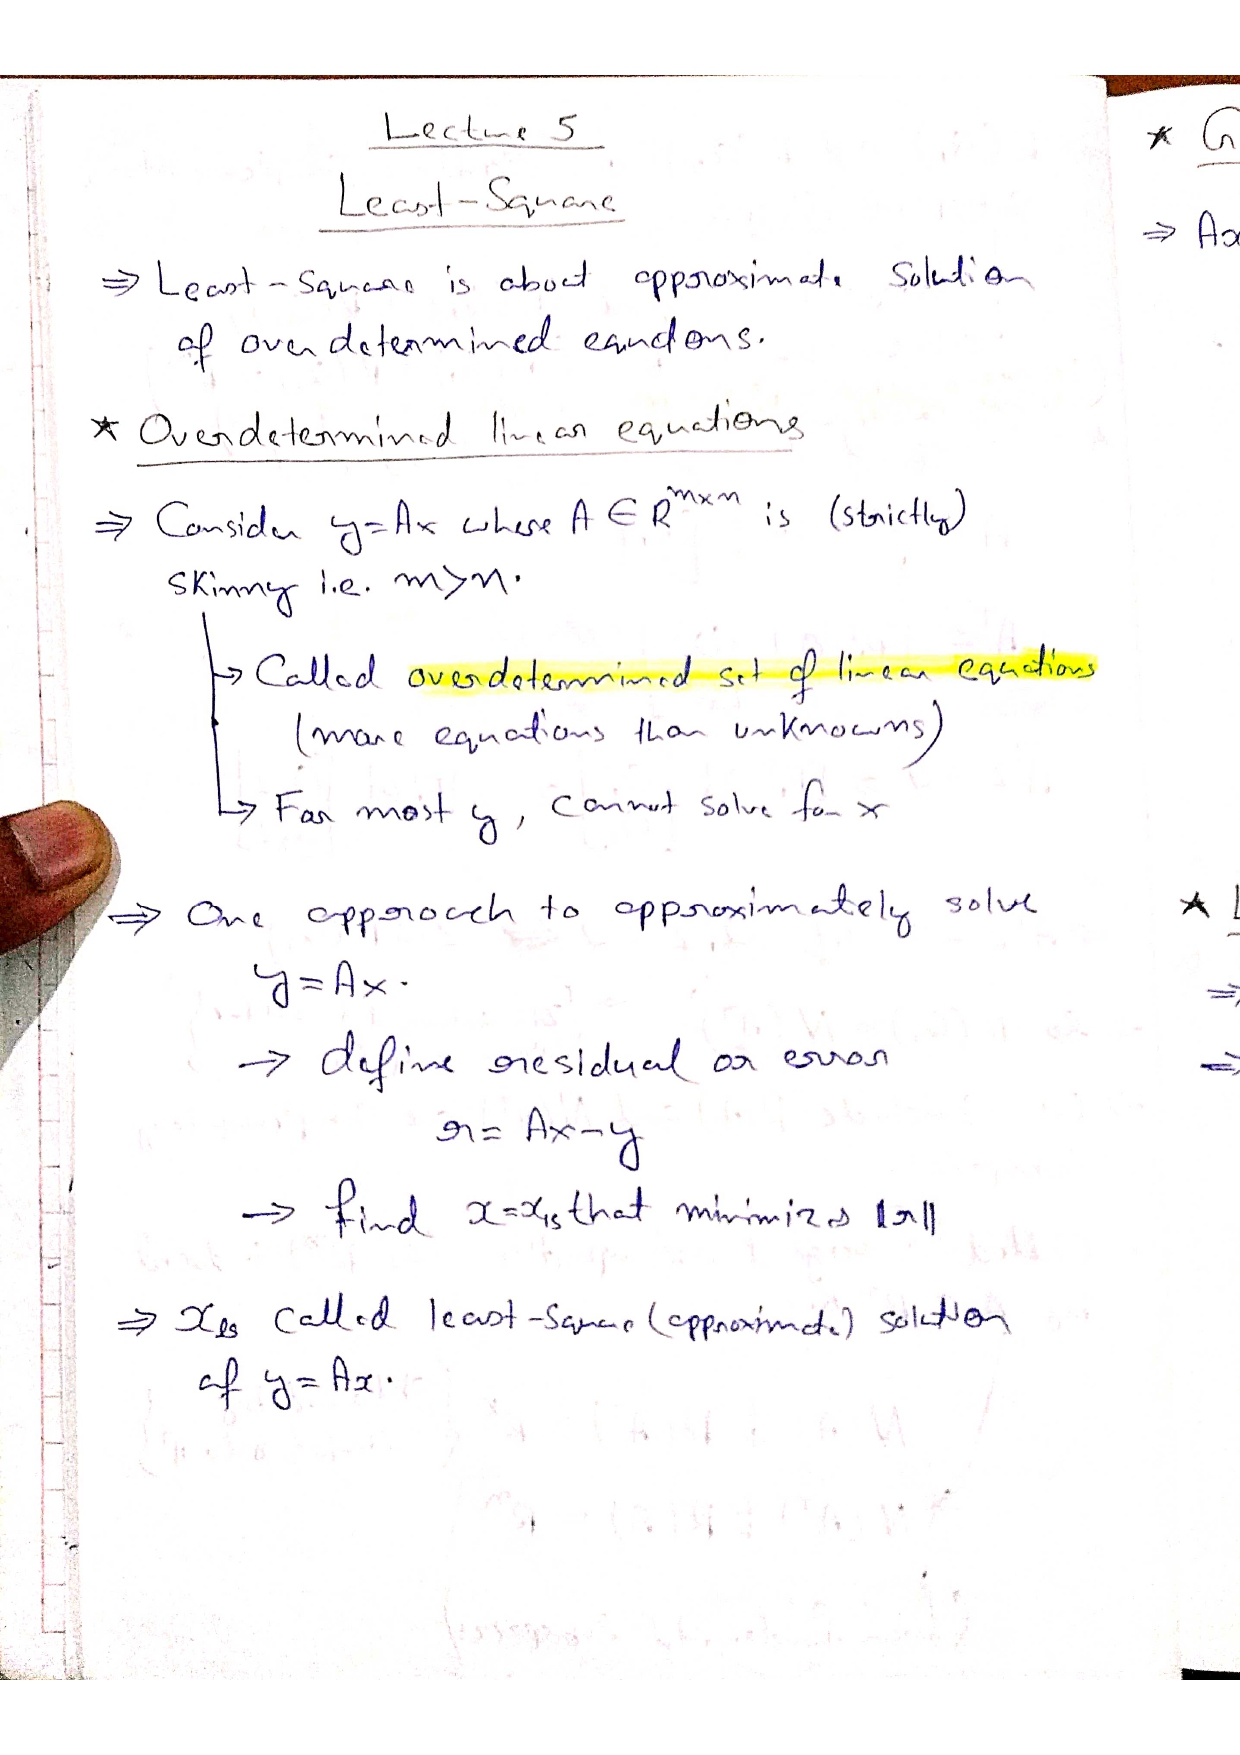 Lecture 5
Least-Square
⇒ Least-Square is about approximate Solution
of overdetermined equations.
★ Overdetermined linear equations
⇒ Consider y=Ax where A ∈ R^{m×n} is (strictly)
skinny i.e. m>n.
↳ Called overdetermined set of linear equations
(more equations than unknowns)
↳ For most y, cannot solve for x
⇒ One approach to approximately solve
y=Ax.
→ define residual or error
r= Ax-y
→ find x=x_{ls} that minimizes ||r||
⇒ x_{ls} called least-square (approximate) solution
of y=Ax.
★ G
⇒ Ax
★ L
⇒
⇒